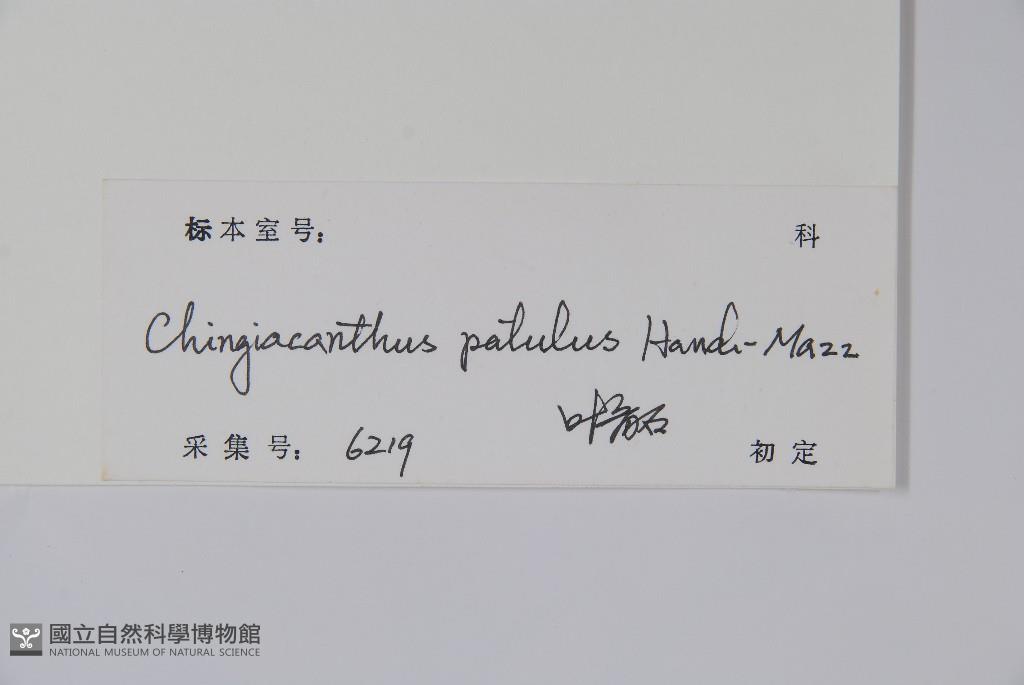 标本室号： 科
Chingiacanthus patulus Hand-Mazz
叶
采集号： 6219 初定
國立自然科學博物館
NATIONAL MUSEUM OF NATURAL SCIENCE